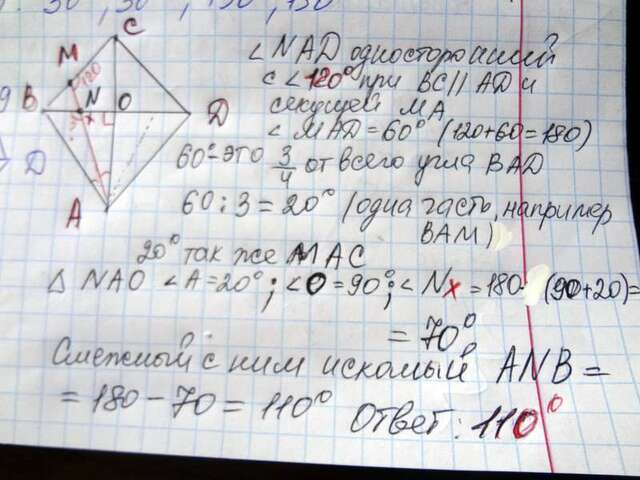 30°, 30°, 150, 150
C
M
120
B
N
O
D
x
A
D
∠NAD односторонний
с ∠120° при BC || AD и
секущей MA
∠MAD = 60° (120+60=180)
60° - это 3/4 от всего угла BAD
60 : 3 = 20° (одна часть, например
BAM)
20° так же MAC
△ NAO ∠A=20°; ∠O=90°; ∠Nx = 180 - (90+20) =
= 70°
Смежный с ним искомый ANB =
= 180 - 70 = 110° Ответ: 110°